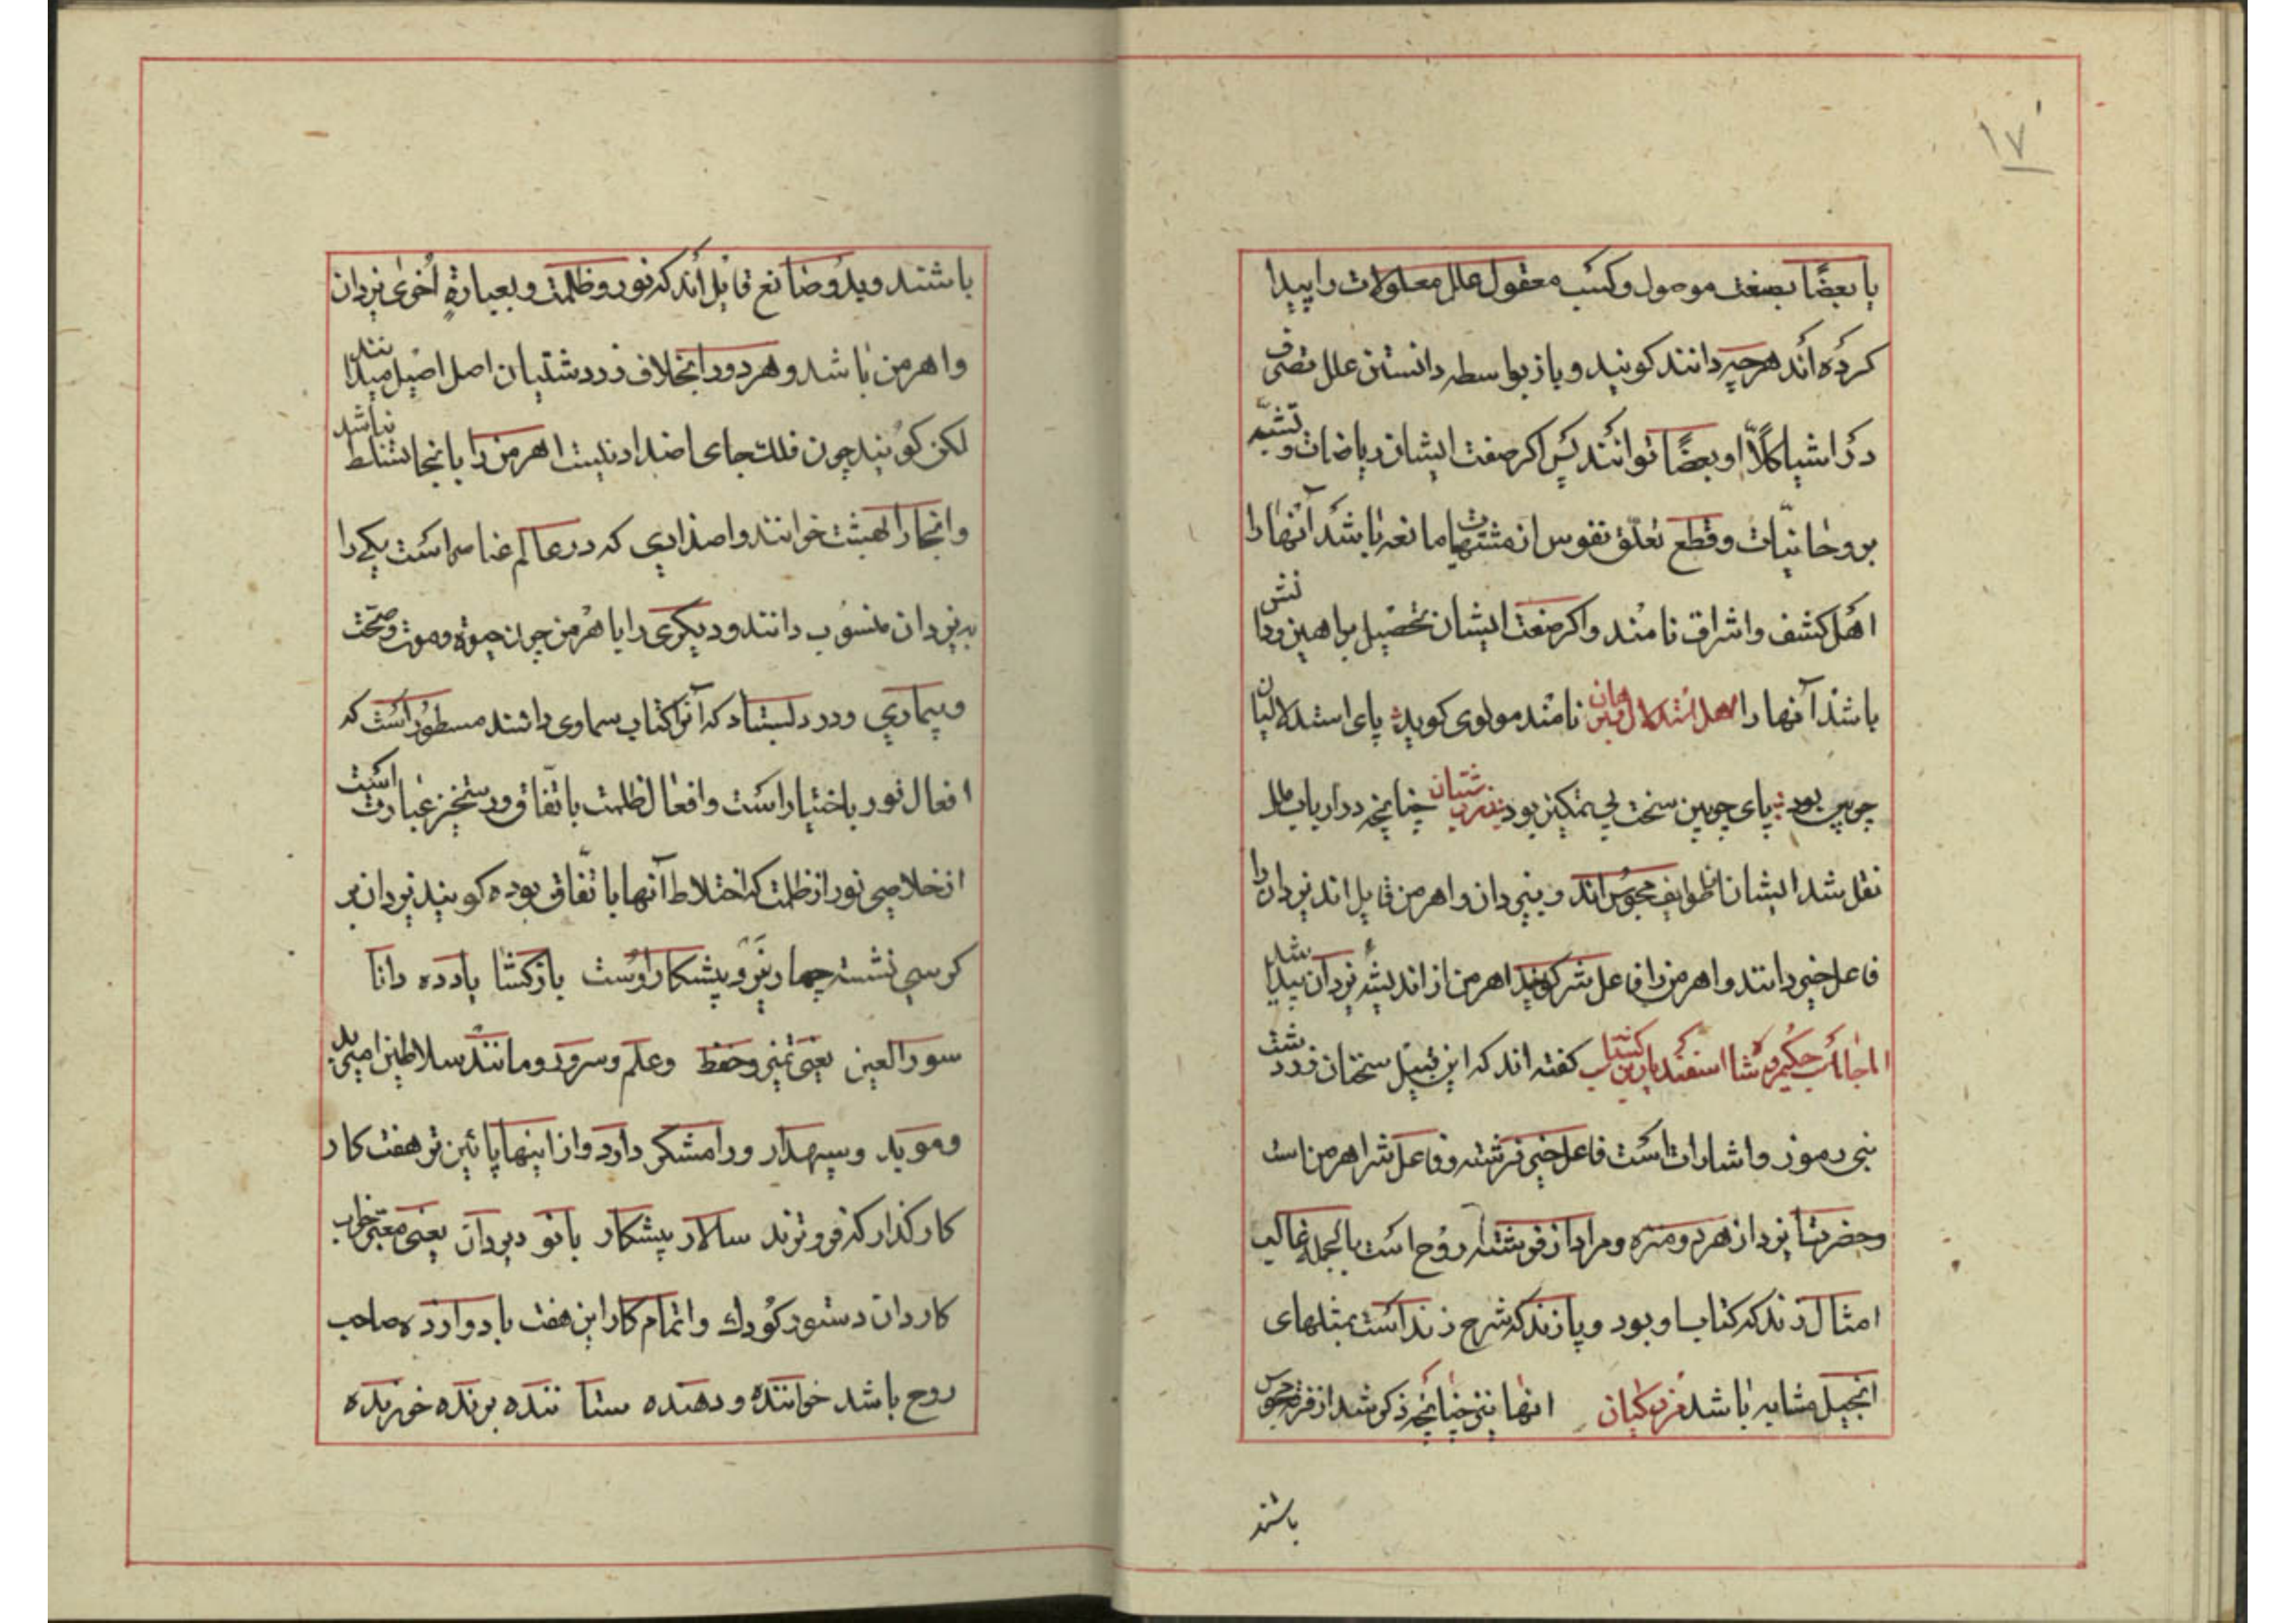 ۱۷
یا بعضًا بصفت موصول و کسب معقول علل معلولات را پیدا
کرده اند هرچه دانند کویند و باز بواسطه دانستن علل تصرف
در اشیا کلاً او بعضًا توانند پس اکر صفت ایشان ریاضات و تشبّه
بروحانیّات و قطع تعلّق نفوس از مشتهیات مانعه باشد آنها را
اهل کشف و اشراق نامند و اکر صفت ایشان تحصیل براهین و دانش
باشد آنها را اهل استدلال نامند مولوی کوید پای استدلالیان
چوبین بود پای چوبین سخت بی تمکین بود چنانچه در ارباب ملل
نقل شد ایشان از طوایف مجوس اند و بیزدان و اهرمن قایل اند یزدان را
فاعل خیر دانند و اهرمن را فاعل شر کویند اهرمن از اندیشه یزدان پیدا شد
الجاماسب حکیم و شا اسفندیار بن کشتاسب کفته اند که این قبیل سخنان زردشت
نبی رموز و اشارات است فاعل خیر فرشته و فاعل شر اهرمن است
و حضرت یزدان از هر دو منزه و مراد از فرشته روح است بالجمله غالب
امثال زند که کتاب او بود و پازند که شرح زند است بمثلهای
انجیل مشابه باشد مزدکیان انها نیز چنانچه ذکر شد از فرق مجوس
باشند
باشند و بدو صانع قایل اند که نور و ظلمت و بعبارةٍ اُخری یزدان
و اهرمن باشد و هر دو را بخلاف زردشتیان اصل اصیل میدانند
لکن کویند چون فلک جای اضداد نیست اهرمن را بانجا تسلط نباشد
و انجا را بهشت خوانند و اضدادی که در عالم عناصر است یکی را
به یزدان منسوب دانند و دیکری را با هرمن چون حیوة و موت و صحّت
و بیماری و در دلبستاد که آنرا کتاب سماوی دانند مسطور است که
افعال نور باختیار است و افعال ظلمت باتّفاق و رستخیز عبارت است
از خلاصی نور از ظلمت که اختلاط آنها باتّفاق بوده کویند یزدان بر
کرسی نشسته چهار نیرو پیشکار اوست بازکشا یادده دانا
سورا لعین یعنی تمیز و حفظ و علم و سرور و مانند سلاطین امیر بد
و موبد و سپهدار و رامشکر دارد و از اینها پائین تر هفت کار
کارکذار که فروترند سالار پیشکار بانو دیروان یعنی معتبر خواب
کاردان دستور کودک و اتمام کار این هفت با دوازده صاحب
روح باشد خواننده و دهنده ستاننده برنده خورنده